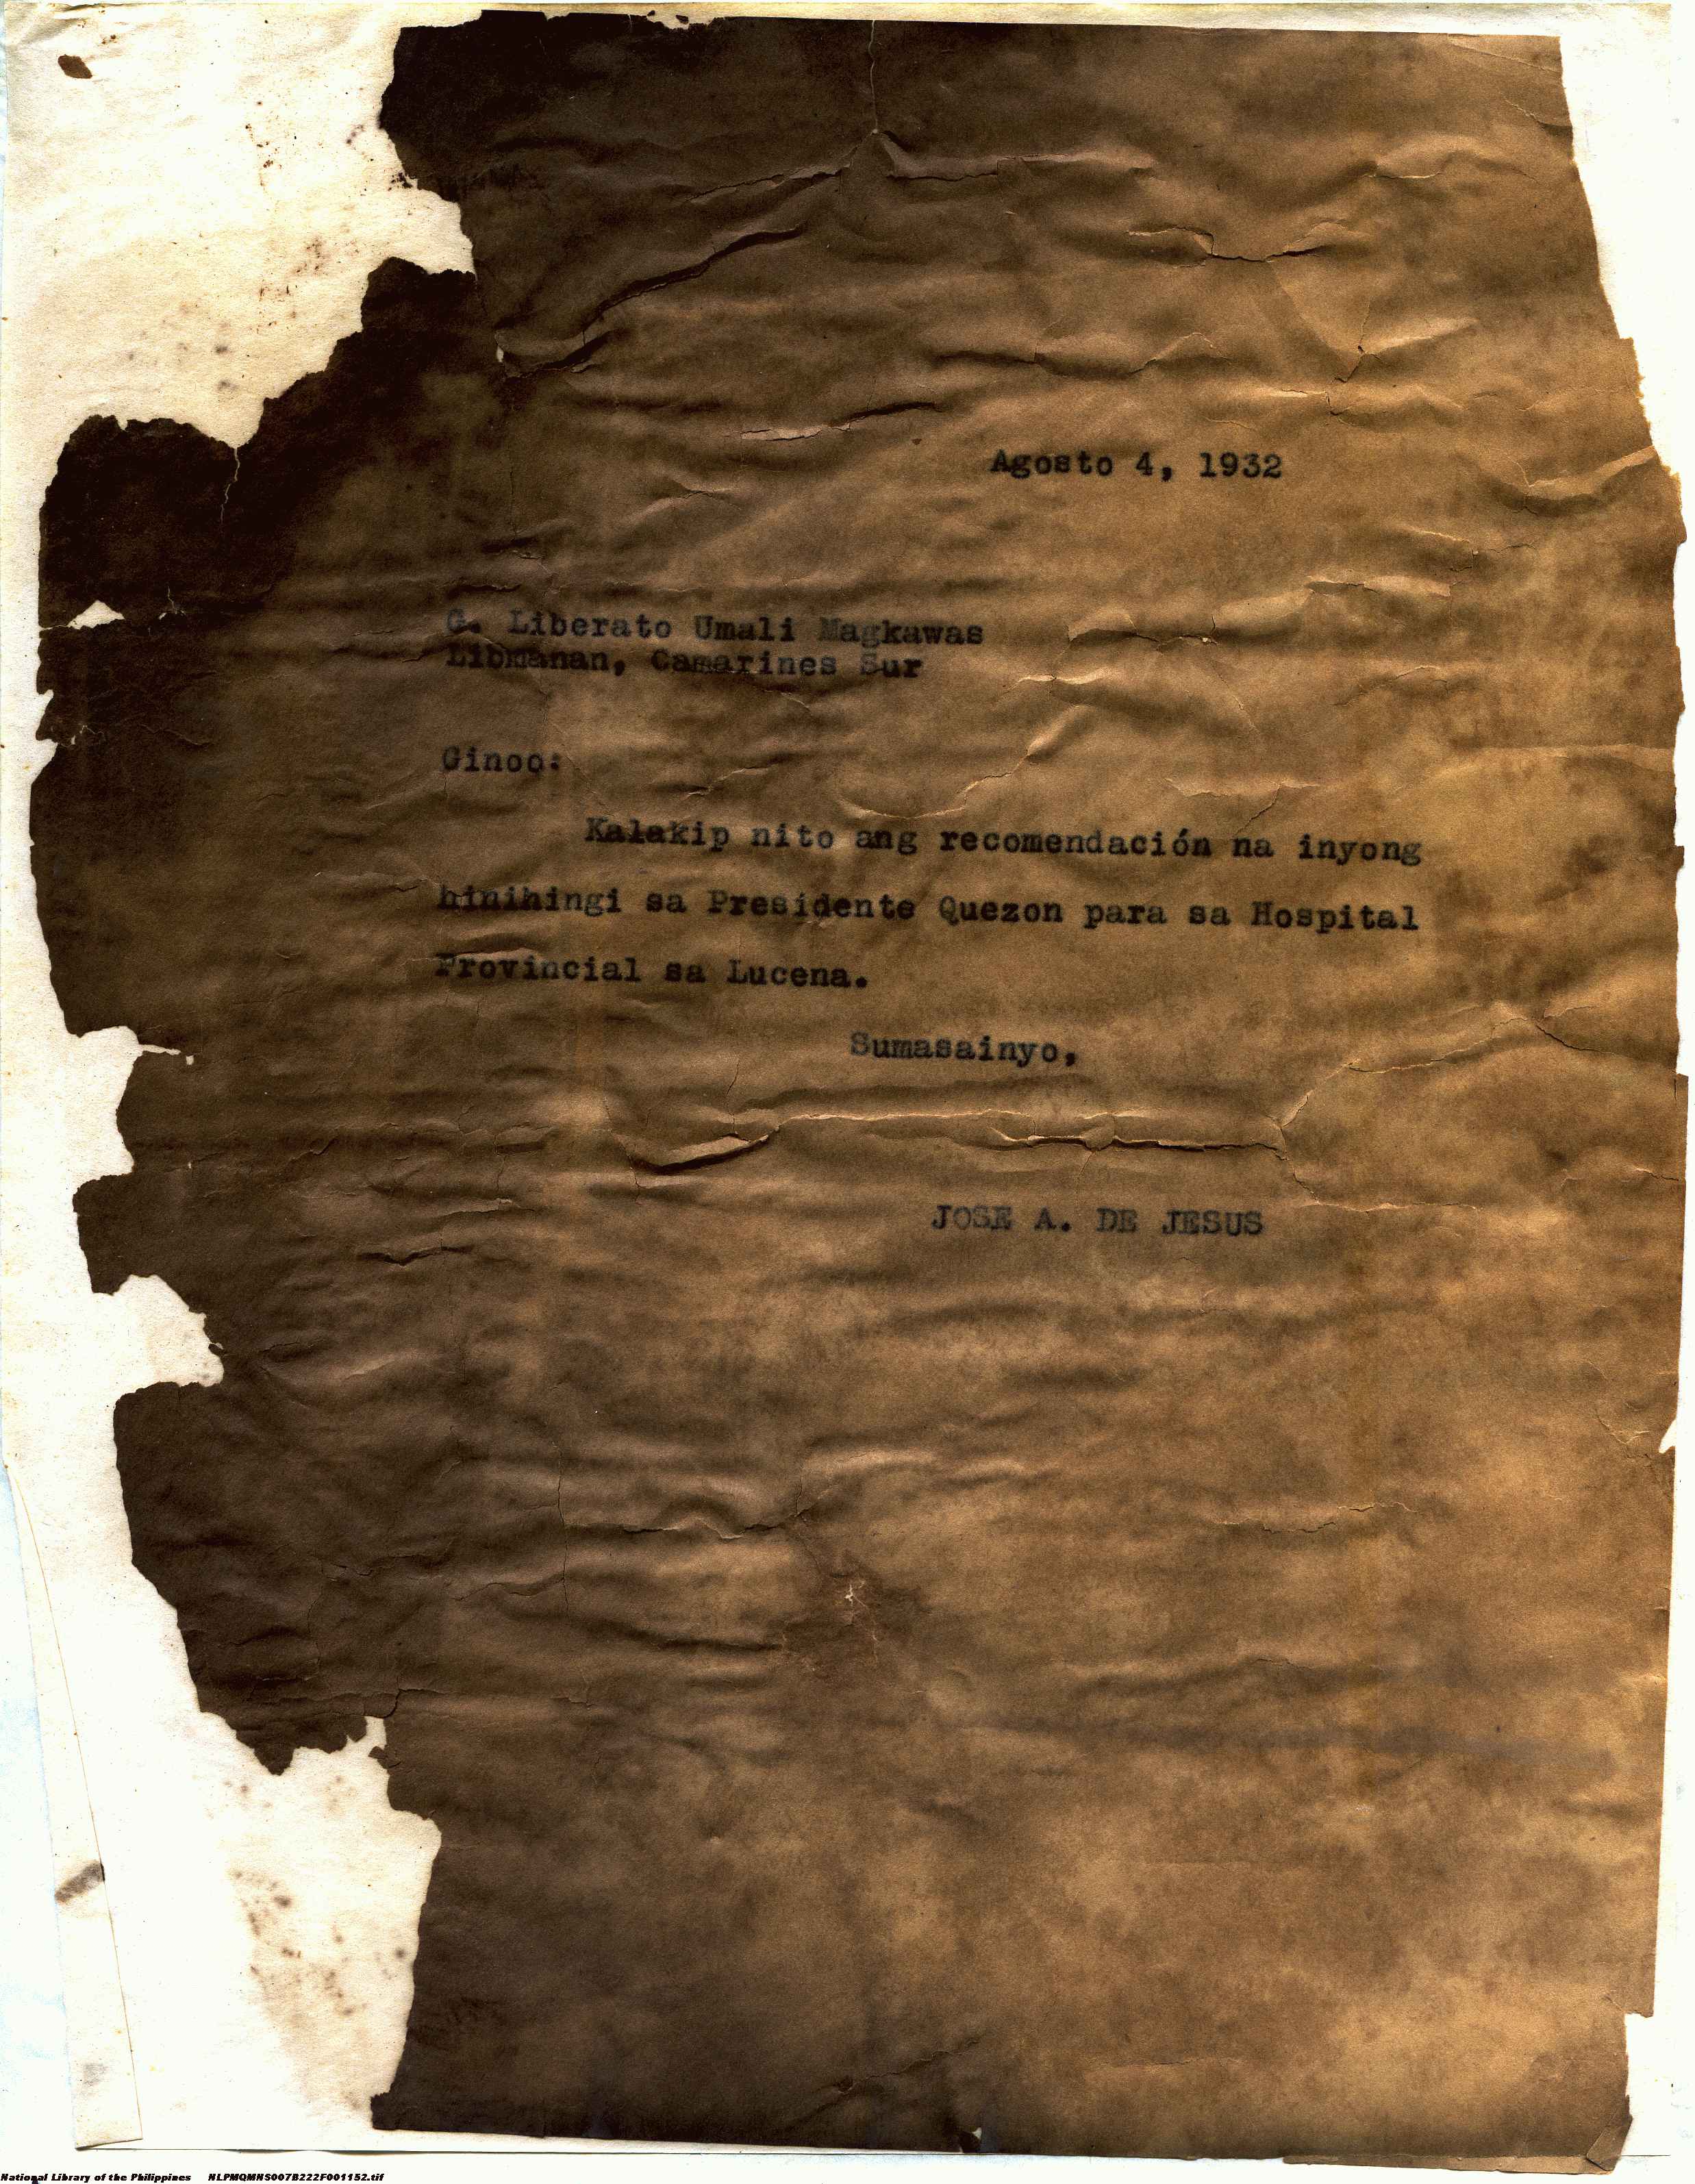 Agosto 4, 1932
G. Liberato Umali Magkawas
Libmanan, Camarines Sur
Ginoo:
Kalakip nito ang recomendación na inyong
hinihingi sa Presidente Quezon para sa Hospital
Provincial sa Lucena.
Sumasainyo,
JOSE A. DE JESUS
National Library of the Philippines NLPMQMNS007B222F001152.tif